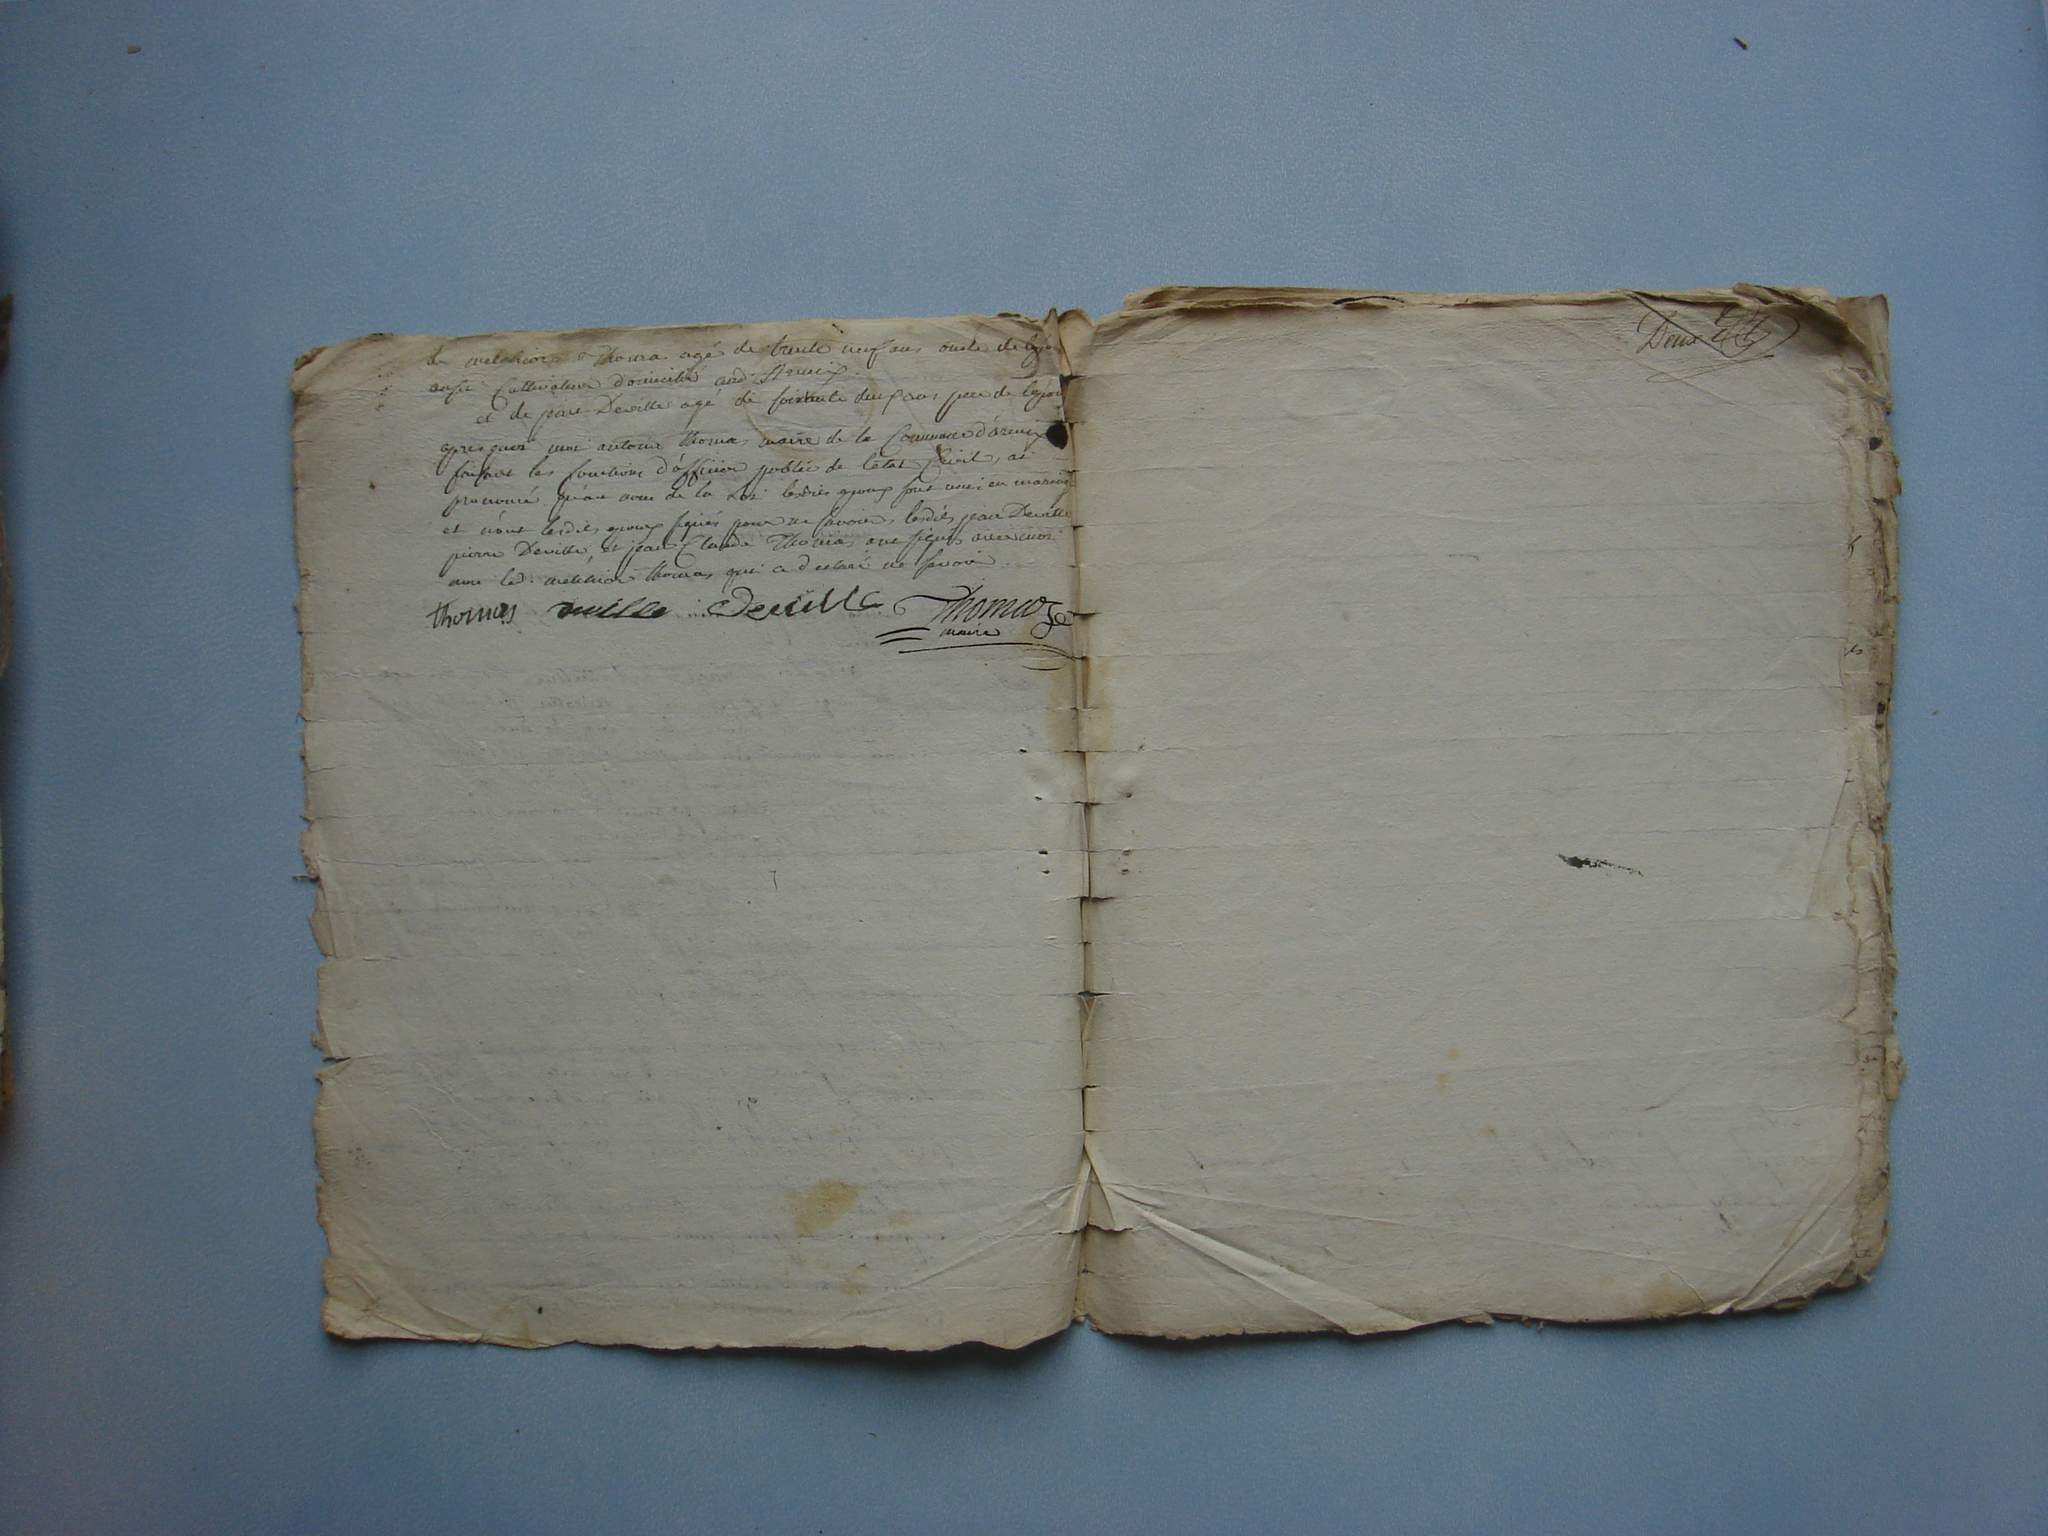 de melchior Thomas agé de trente neuf ans oncle de
aussi Cultivateur domicilié aud. areneix
et de jean Deville agé de soixante deux ans pere de
apres quoi moi antoine thomas maire de la Commune d'
faisant les fonctions d'officier public de l'état Civil, ai
prononcé qu'au nom de la Loi lesdits epoux sont unis en mariage
et n'ont lesdits epoux signés pour ne savoir, lesdits jean Deville
pierre Deville, et jean Claude Thomas ont signés avec moi
non led. melchior thomas qui a declaré ne savoir
thomas deville Deville Thomas
maire
Deux